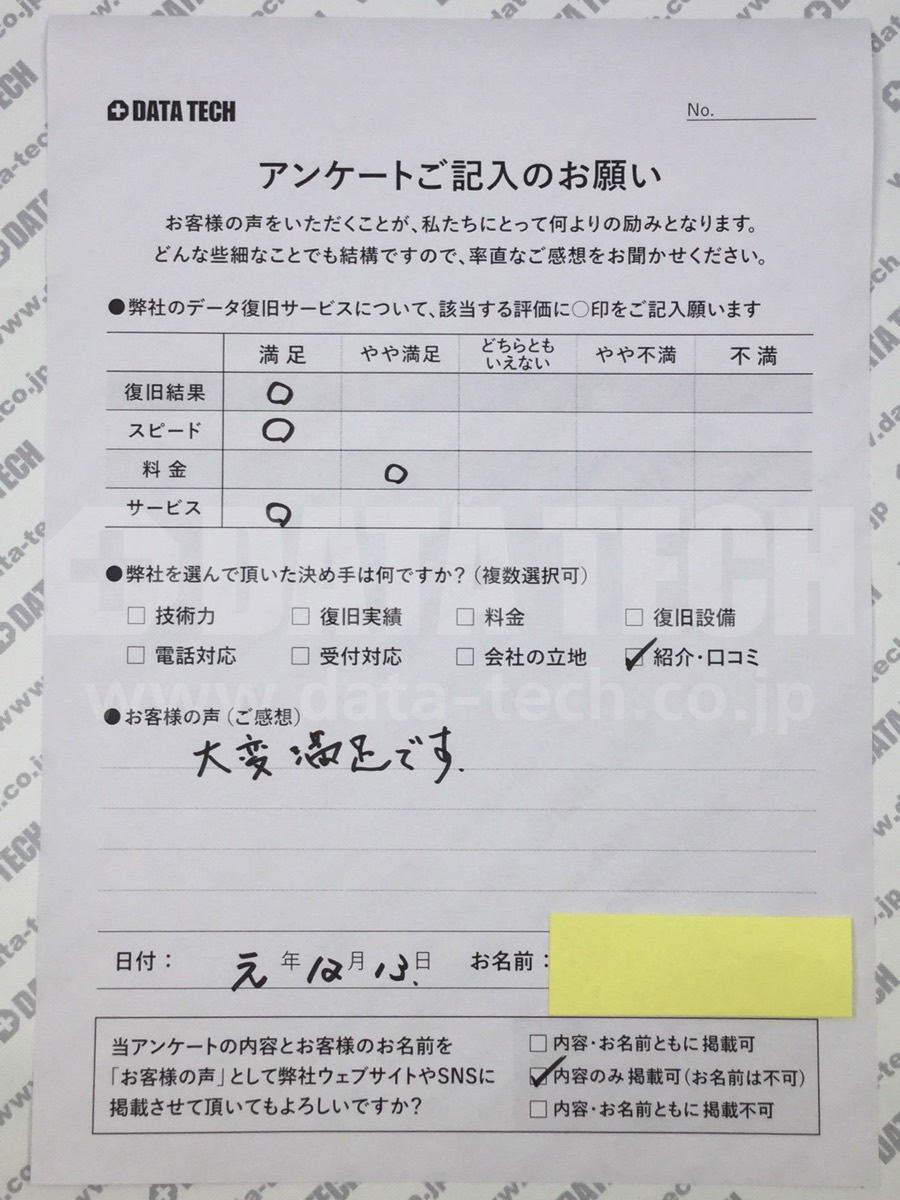 DATA TECH
No.
アンケートご記入のお願い
お客様の声をいただくことが、私たちにとって何よりの励みとなります。
どんな些細なことでも結構ですので、率直なご感想をお聞かせください。
●弊社のデータ復旧サービスについて、該当する評価に○印をご記入願います
満足 やや満足 どちらとも いえない やや不満 不満
復旧結果 ○
スピード ○
料金 ○
サービス ○
DATA TECH
●弊社を選んで頂いた決め手は何ですか？（複数選択可）
□ 技術力 □ 復旧実績 □ 料金 □ 復旧設備
□ 電話対応 □ 受付対応 □ 会社の立地 ☑ 紹介・口コミ
www.data-tech.co.jp
●お客様の声（ご感想）
大変満足です.
日付： 元年12月13日 お名前：
当アンケートの内容とお客様のお名前を
「お客様の声」として弊社ウェブサイトやSNSに
掲載させて頂いてもよろしいですか？
□ 内容・お名前ともに掲載可
☑ 内容のみ掲載可（お名前は不可）
□ 内容・お名前ともに掲載不可